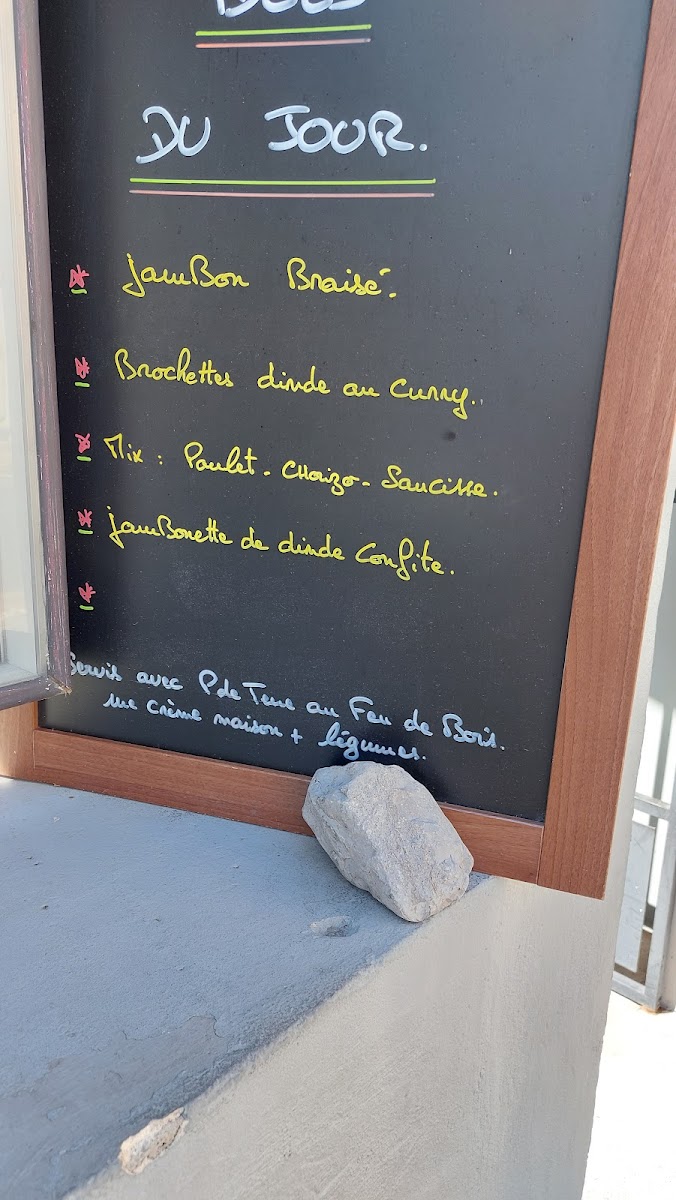 DU JOUR.
* JamBon Braisé.
* Brochettes dinde au Curry.
* Mix : Poulet - CHorizo - Saucisse.
* JamBonette de dinde Confite.
*
Servis avec P de Terre au Feu de Bois.
une crème maison + légumes.